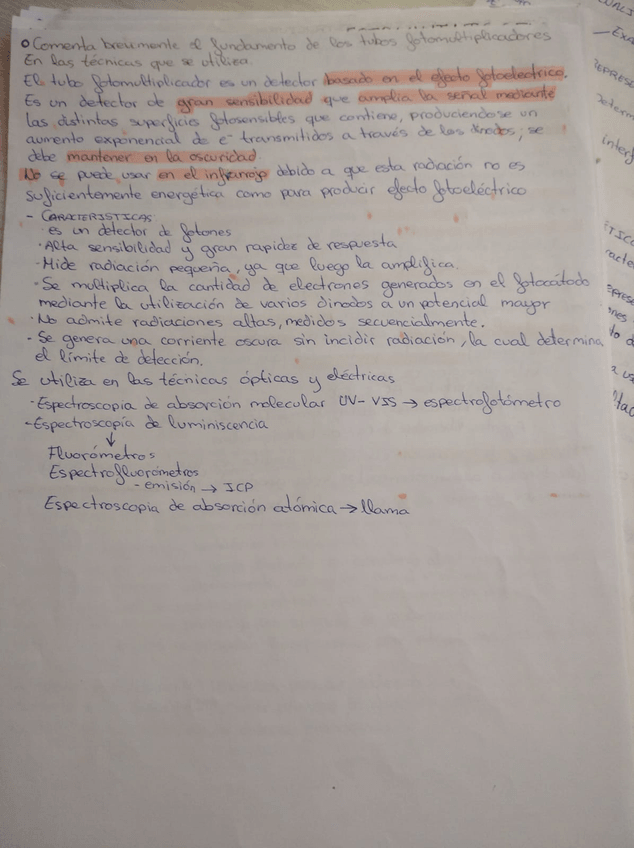 Comenta brevemente el fundamento de los tubos fotomultiplicadores
En las técnicas que se utiliza.
El tubo fotomultiplicador es un detector basado en el efecto fotoelectrico.
Es un detector de gran sensibilidad que amplia la señal mediante
las distintas superficies fotosensibles que contiene, produciendose un
aumento exponencial de e⁻ transmitidos a través de los dinodos, se
debe mantener en la oscuridad.
No se puede usar en el infrarrojo debido a que esta radiación no es
suficientemente energética como para producir efecto fotoeléctrico
- CARACTERISTICAS
· es un detector de fotones
· Alta sensibilidad y gran rapidez de respuesta
- Mide radiación pequeña, ya que luego la amplifica.
· Se multiplica la cantidad de electrones generados en el fotocátodo
mediante la utilización de varios dinodos a un potencial mayor
· No admite radiaciones altas, medidos secuencialmente.
- Se genera una corriente oscura sin incidir radiación, la cual determina
el límite de detección.
Se utiliza en las técnicas ópticas y eléctricas
· Espectroscopia de absorción molecular UV-VIS → espectrofotómetro
- Espectroscopía de luminiscencia
↓
Fluorómetros
Espectrofluorómetros
- emisión → ICP
Espectroscopia de absorción atómica → llama